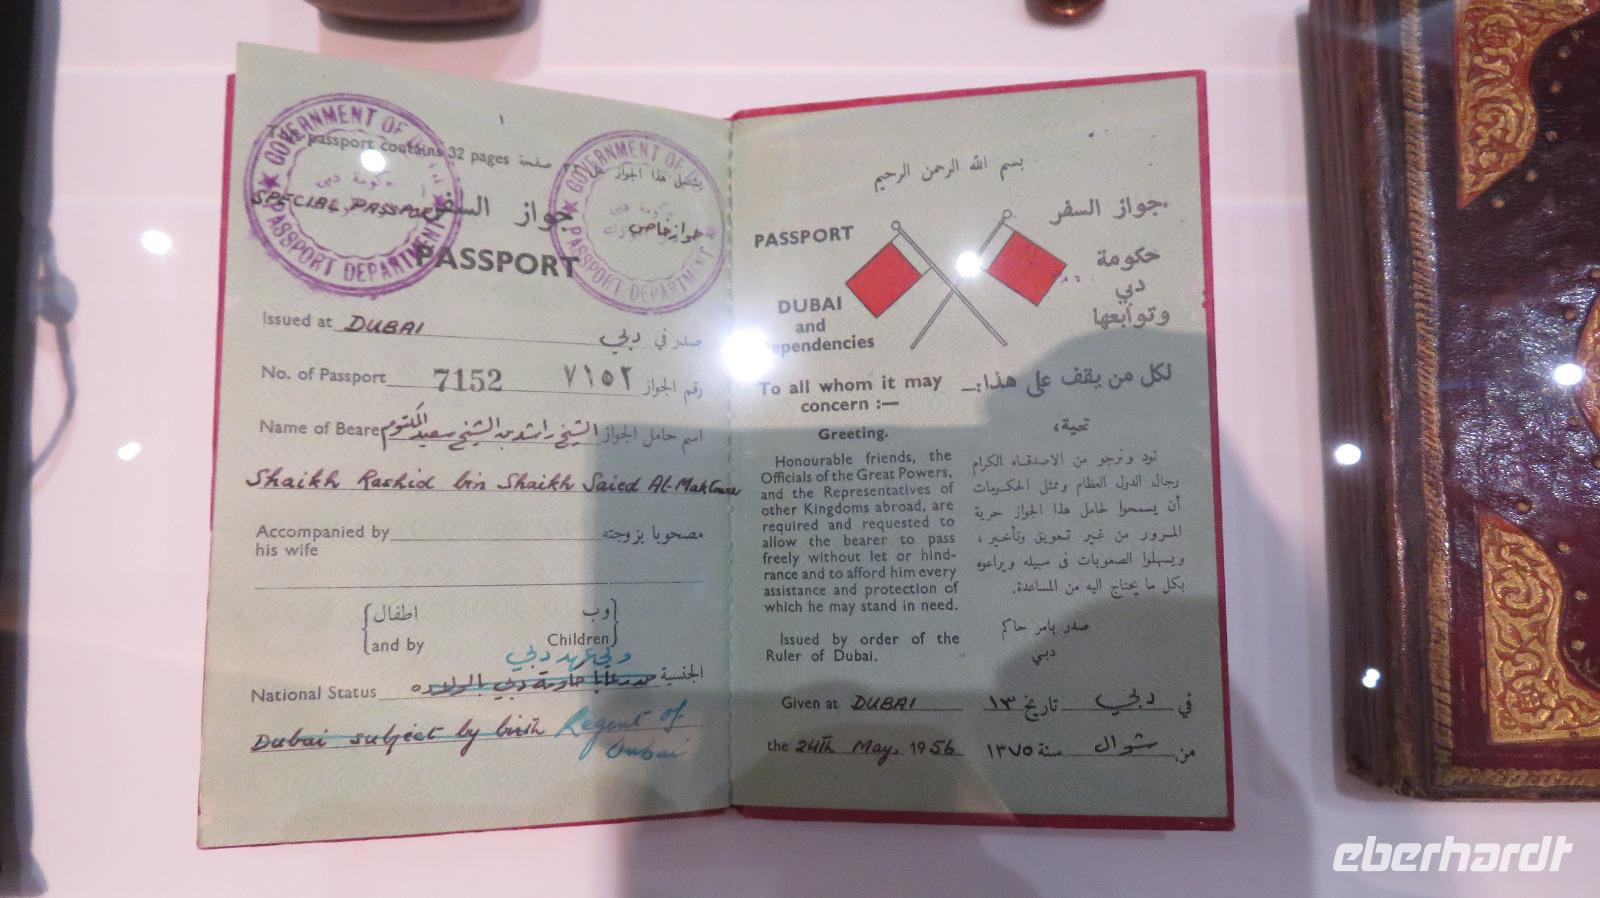 GOVERNMENT OF
PASSPORT DEPARTMENT
حكومة دبي
GOVERNMENT OF
PASSPORT DEPARTMENT
passport contains 32 pages صفحة
يشتمل هذا الجواز
SPECIAL PASSPORT
جواز خاص
جواز السفر
PASSPORT
Issued at DUBAI صدر في دبي
No. of Passport 7152 رقم الجواز ٧١٥٢
Name of Bearer اسم حامل الجواز الشيخ راشد بن الشيخ سعيد المكتوم
Shaikh Rashid bin Shaikh Saied Al-Maktoum
Accompanied by مصحوبا بزوجته
his wife
وب اطفال
and by Children
ولي عهد دبي
National Status الجنسية
Dubai subject by birth Regent of
Dubai
بسم الله الرحمن الرحيم
PASSPORT
جواز السفر
DUBAI
and
Dependencies
حكومة
دبي
وتوابعها
To all whom it may
concern :—
لكل من يقف على هذا:—
Greeting.
تحية،
Honourable friends, the
Officials of the Great Powers,
and the Representatives of
other Kingdoms abroad, are
required and requested to
allow the bearer to pass
freely without let or hind-
rance and to afford him every
assistance and protection of
which he may stand in need.
نود ونرجو من الاصدقاء الكرام
رجال الدول العظام وممثلى الحكومات
أن يسمحوا لحامل هذا الجواز حرية
المرور من غير تعويق وتأخير،
ويسهلوا الصعوبات فى سبيله ويراعوه
بكل ما يحتاج اليه من المساعدة.
Issued by order of the
Ruler of Dubai.
صدر بامر حاكم
دبي
Given at DUBAI
في دبي تاريخ ١٣
the 24TH May. 1956
من شوال سنة ١٣٧٥
eberhardt